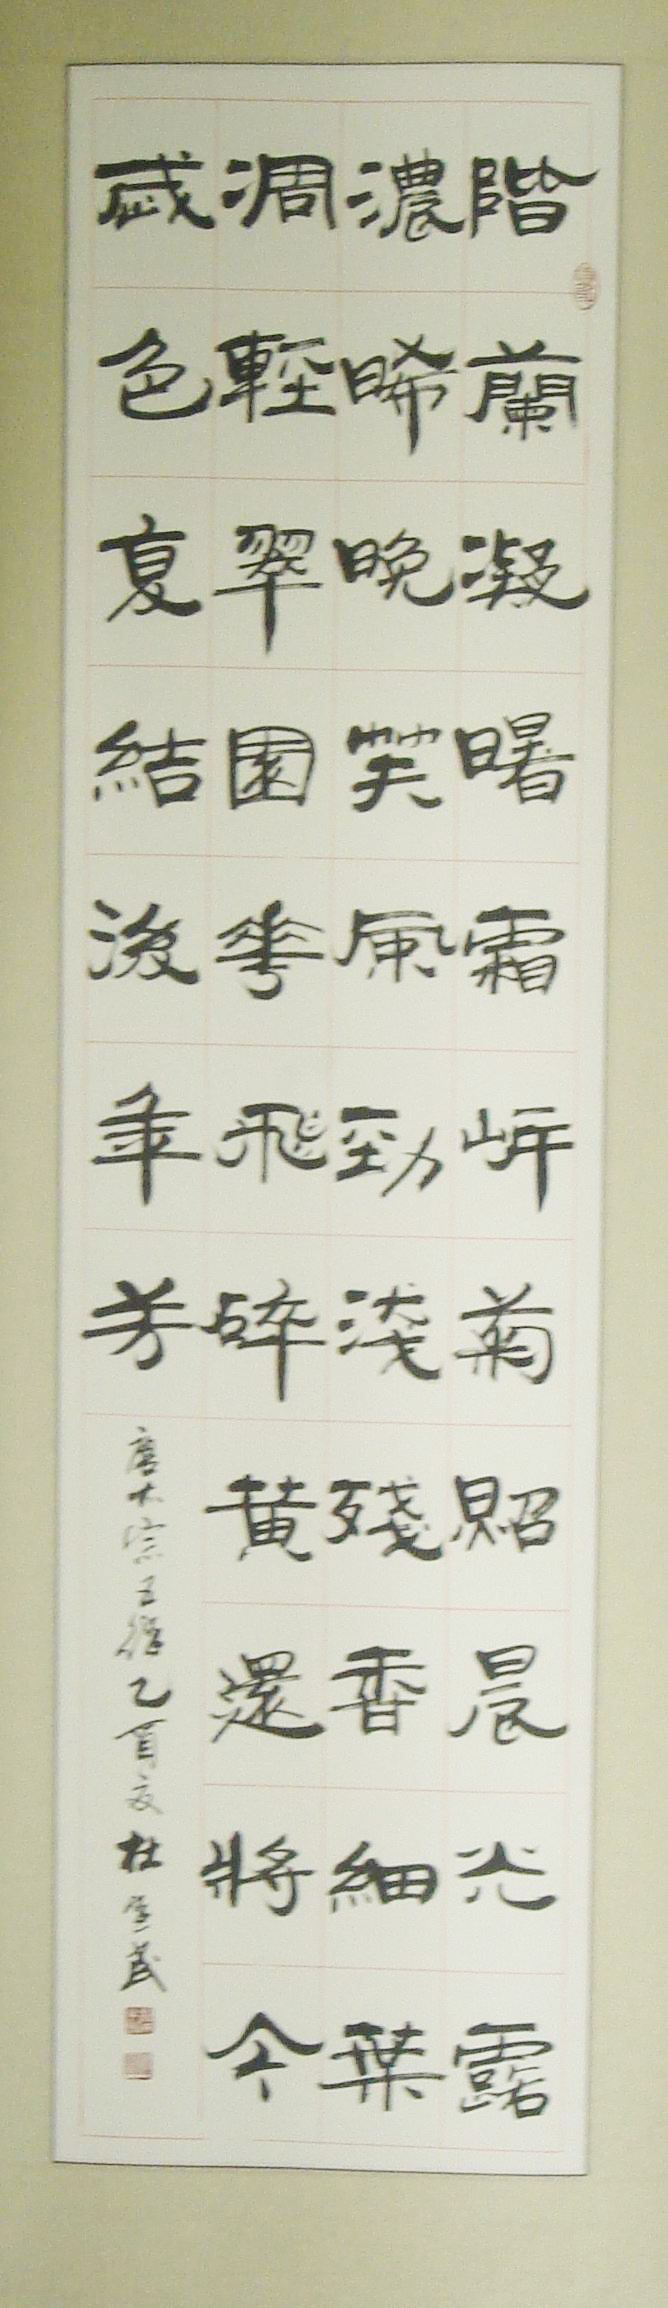 階蘭凝曙霜岸菊照晨光露
濃晞晚笑風勁淺殘香細葉
凋輕翠園花飛碎黃還將今
歲色复結後年芳
唐太宗五律乙酉夏杜